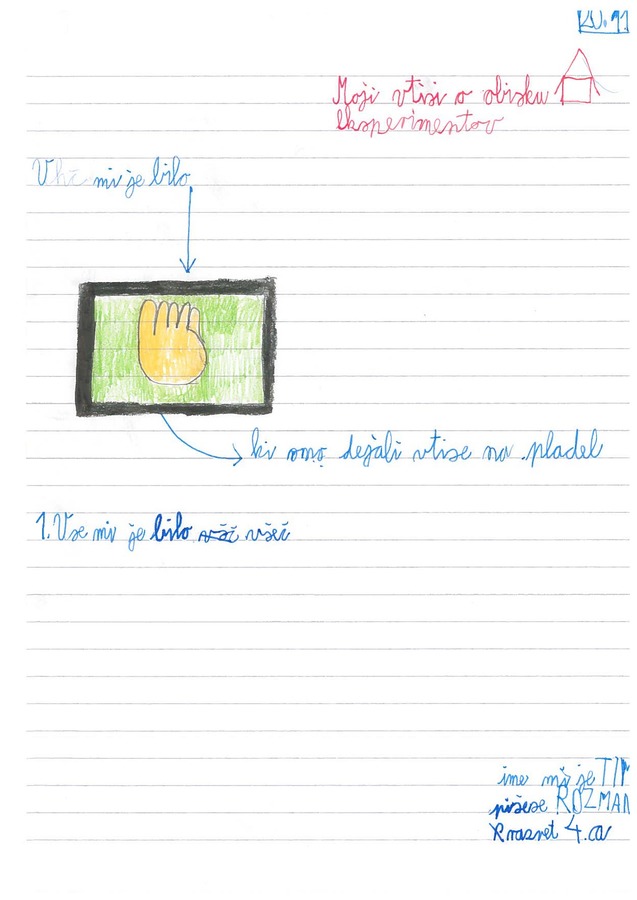 KU. 11
Moji vtisi o obisku
eksperimentov
mi je bilo
ki smo dejali vtise na pladel
1. Vse mi je bilo všeč
ime mi je TIM
pišese ROZMAN
Rrazret 4.a